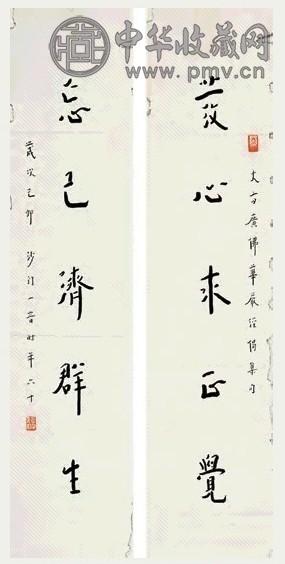 中华收藏网
www.pmv.cn
大方廣佛華嚴經偈集句
發心求正覺
忘己濟群生
歲次己卯 沙門一音時年六十